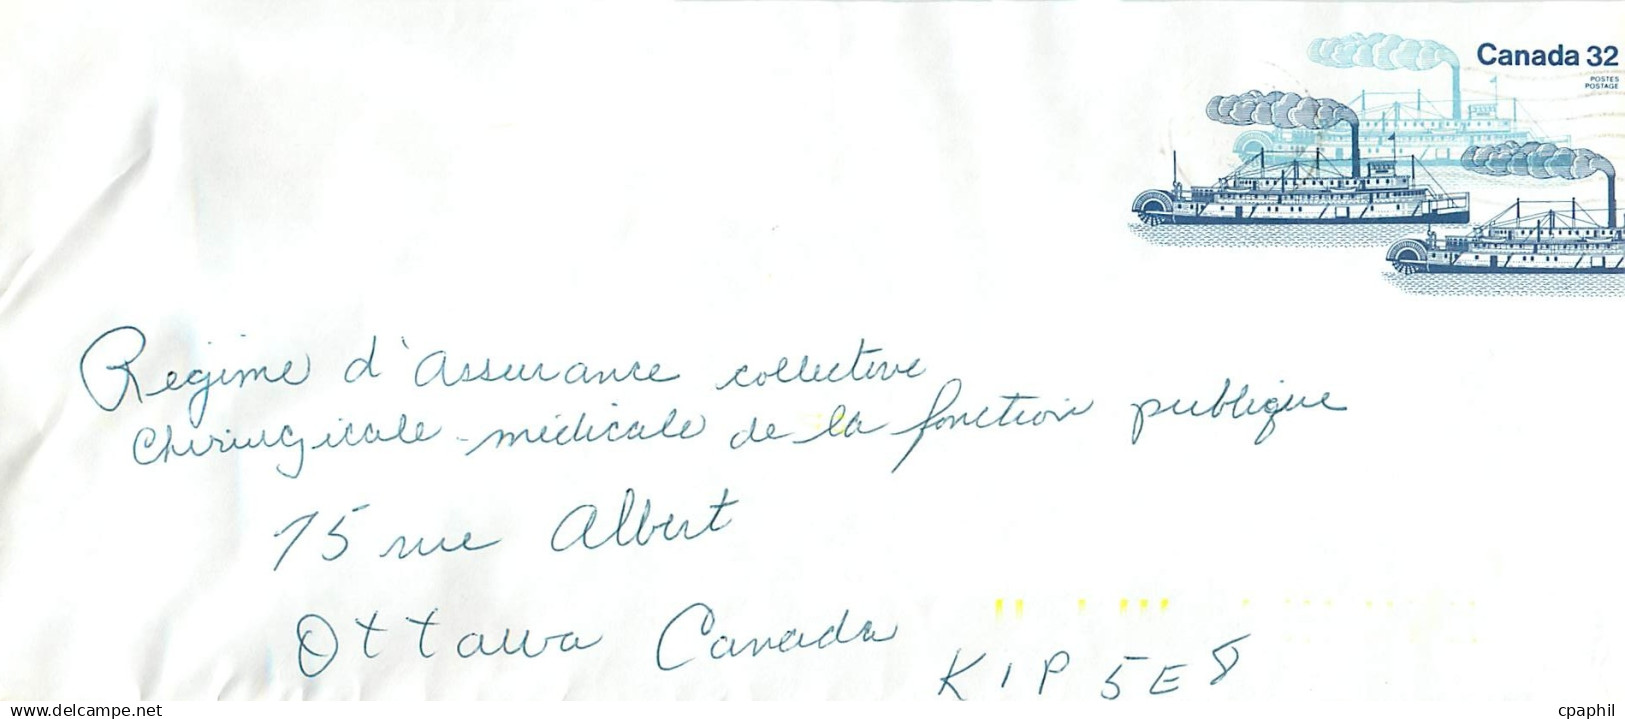 Canada 32
POSTES
POSTAGE
Regime d'assurance collective
Chirurgicale-médicale de la fonction publique
75 rue Albert
Ottawa Canada
K1P 5E8
www.delcampe.net
cpaphil